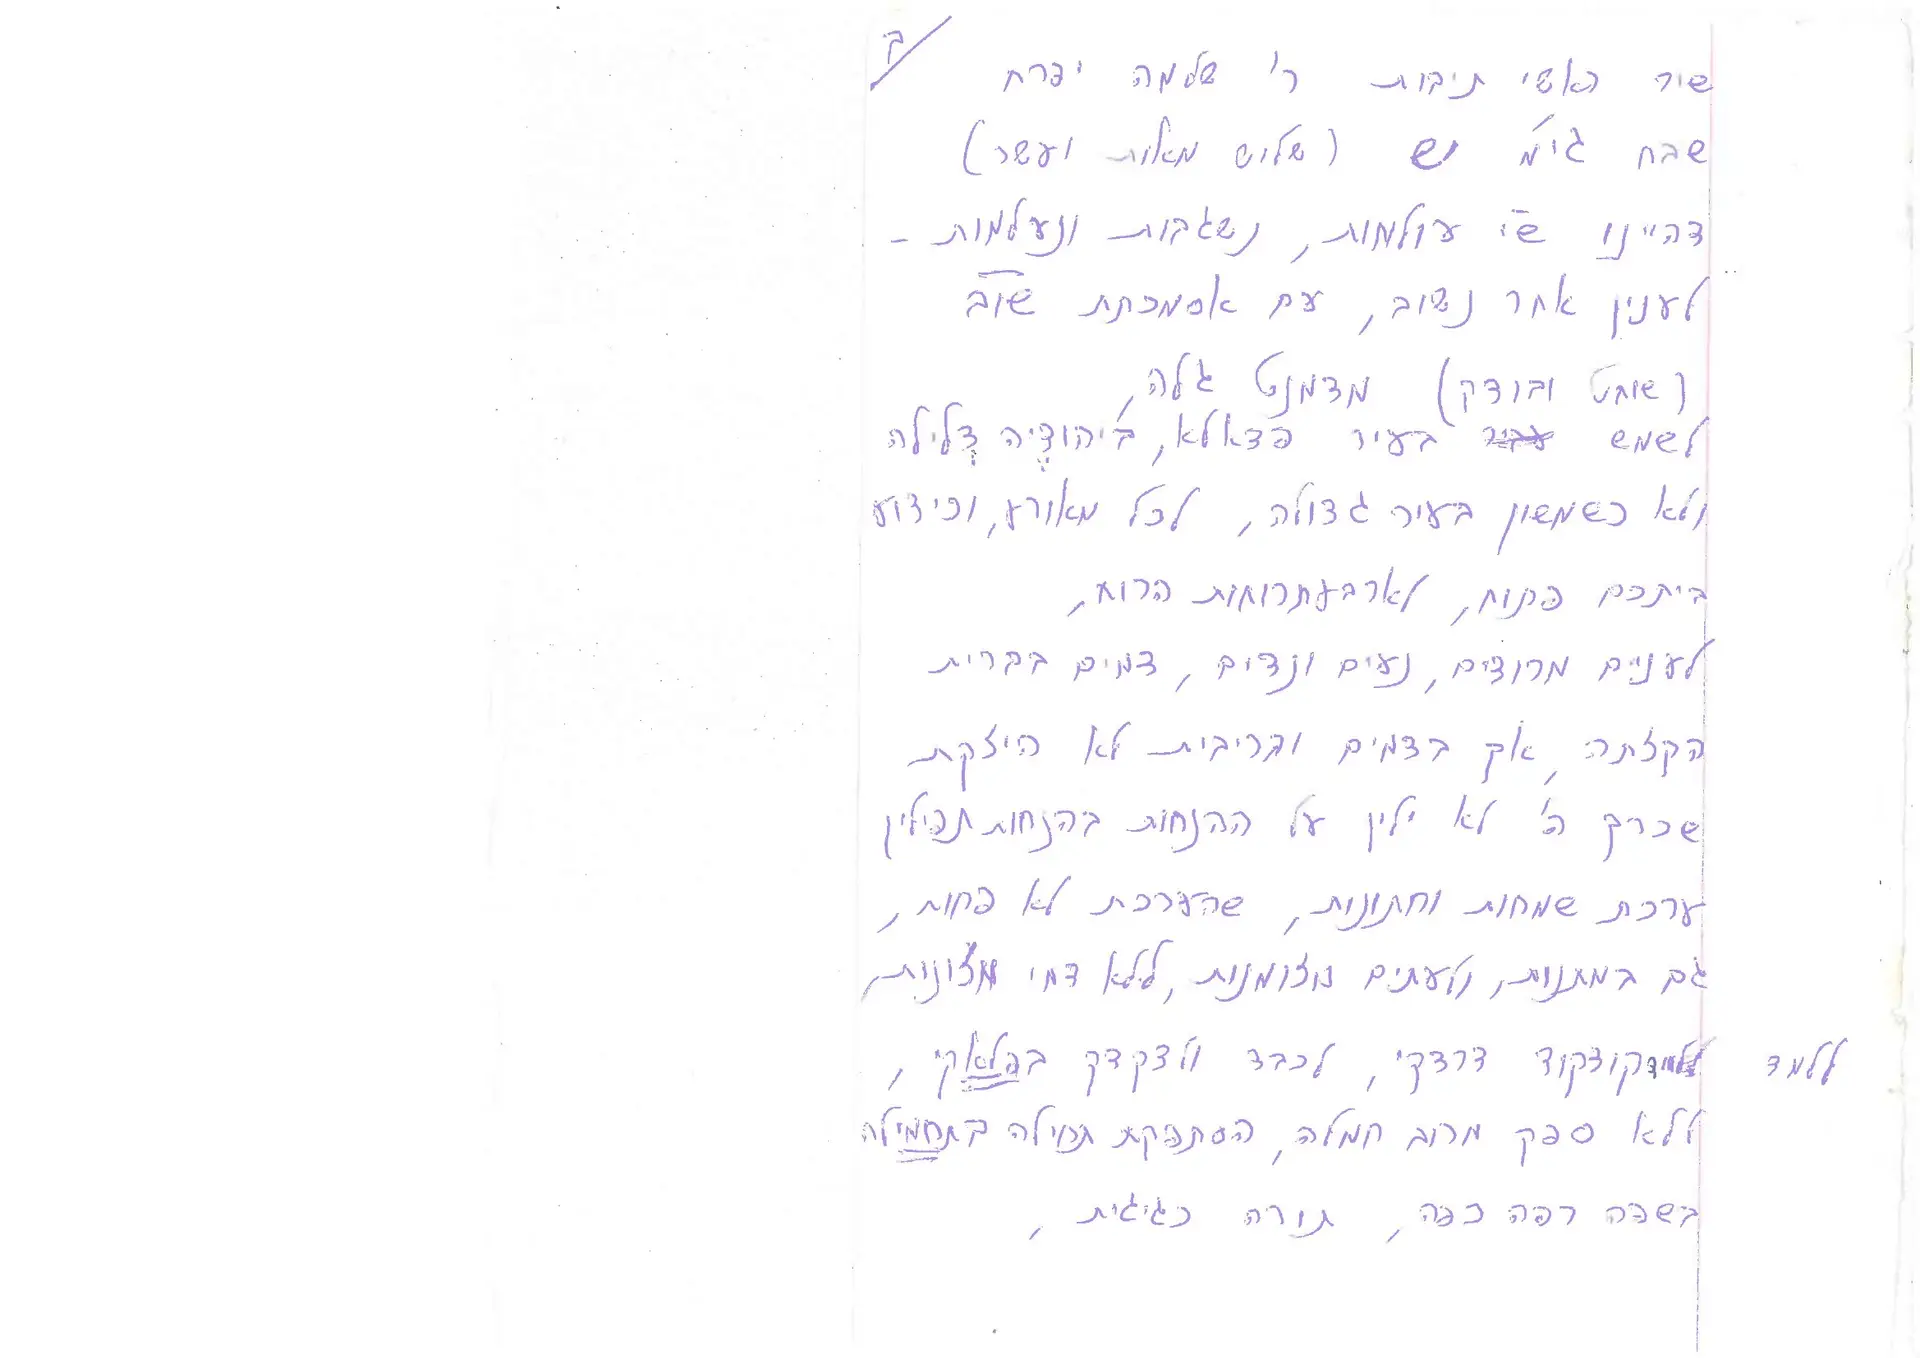 ב
שיר ראשי תיבות ר' שלמה יפרח
שבח גי'מ יש (שלוש מאות ועשר)
דהיינו ש"י עולמות, נשגבות ונעלמות -
לענין אחר נשוב, עם אסמכתת שוב
(שוחט ובודק) מדמנט גלה,
לשמש בעיר פדאלא, ב'יהודיה דלילה
ולא כשמשון בעיר גדולה, לכל מאורע, וכידוע
ביתכם פתוח, לארבעת רוחות הרוח,
לעניים מרודים, נעים ונדים, דמים בברית
הקצתה, אך בדמים ובריבית לא היצקת
שכרך ה' לא ילין על ההנחות בהנחות תפילין
ערכת שמחות וחתונות, שהערכת לא פחות,
גם במתנות, מזומנות, ללא דמי מזונות,
ללמד קודקוד דרדקי, לכבד ולדקדק בפלאקי,
ללא ספק מרוב חמלה, הסתפקת תכילה בתחמילה
בשפה רפה כפה, תורה כגיגית,